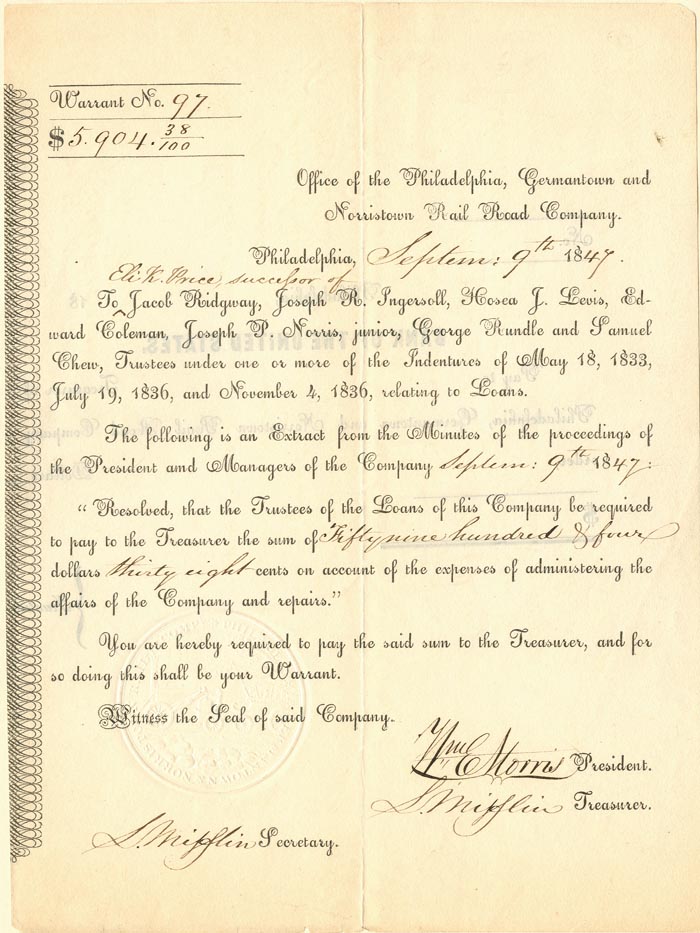 Warrant No. 97.
$5.904.38/100
Office of the Philadelphia, Germantown and
Norristown Rail Road Company.
Philadelphia, Septem: 9th 1847.
Eli K. Price, successor of
To Jacob Ridgway, Joseph R. Ingersoll, Hosea J. Levis, Ed-
ward Coleman, Joseph P. Norris, junior, George Rundle and Samuel
Chew, Trustees under one or more of the Indentures of May 18, 1833,
July 19, 1836, and November 4, 1836, relating to Loans.
The following is an Extract from the Minutes of the proceedings of
the President amd Managers of the Company Septem: 9th 1847:
“Resolved, that the Trustees of the Loans of this Company be required
to pay to the Treasurer the sum of Fifty nine hundred & four
dollars thirty eight cents on account of the expenses of administering the
affairs of the Company and repairs.”
You are hereby required to pay the said sum to the Treasurer, and for
so doing this shall be your Warrant.
Witness the Seal of said Company.
Wm E Morris President.
S. Mifflin Treasurer.
S. Mifflin Secretary.